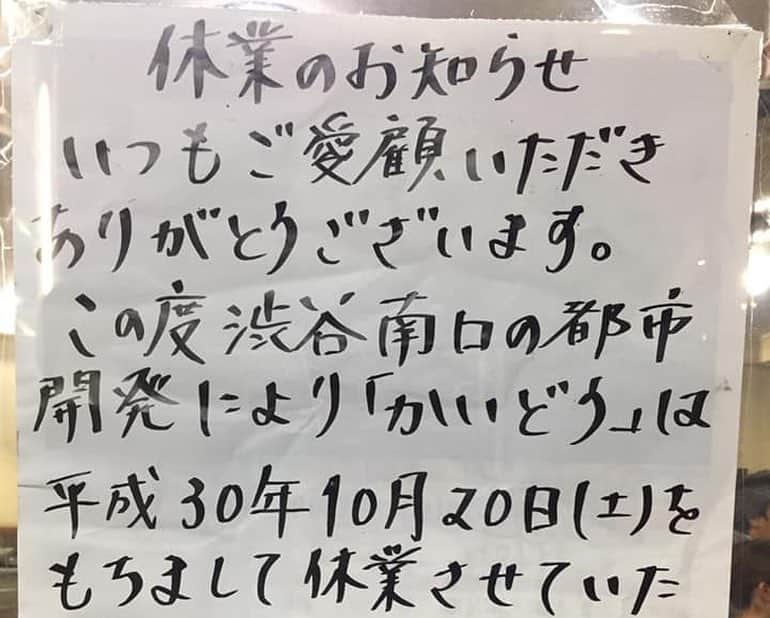 休業のお知らせ
いつもご愛顧いただき
ありがとうございます。
この度渋谷南口の都市
開発により「かいどう」は
平成30年10月20日(土)を
もちまして休業させていた